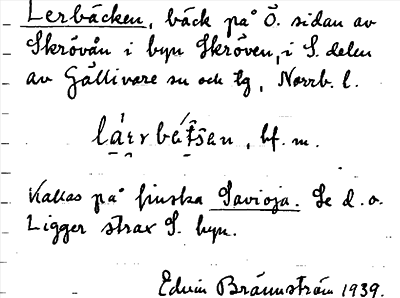 Lerbäcken, bäck på Ö. sidan av
Skrövån i byn Skröven, i S. delen
av Gällivare sn och tg, Norrb. l.
bf. m.
Kallas på finska Savioja. Se d. o.
Ligger strax S. byn.
Edvin Brännström 1939.